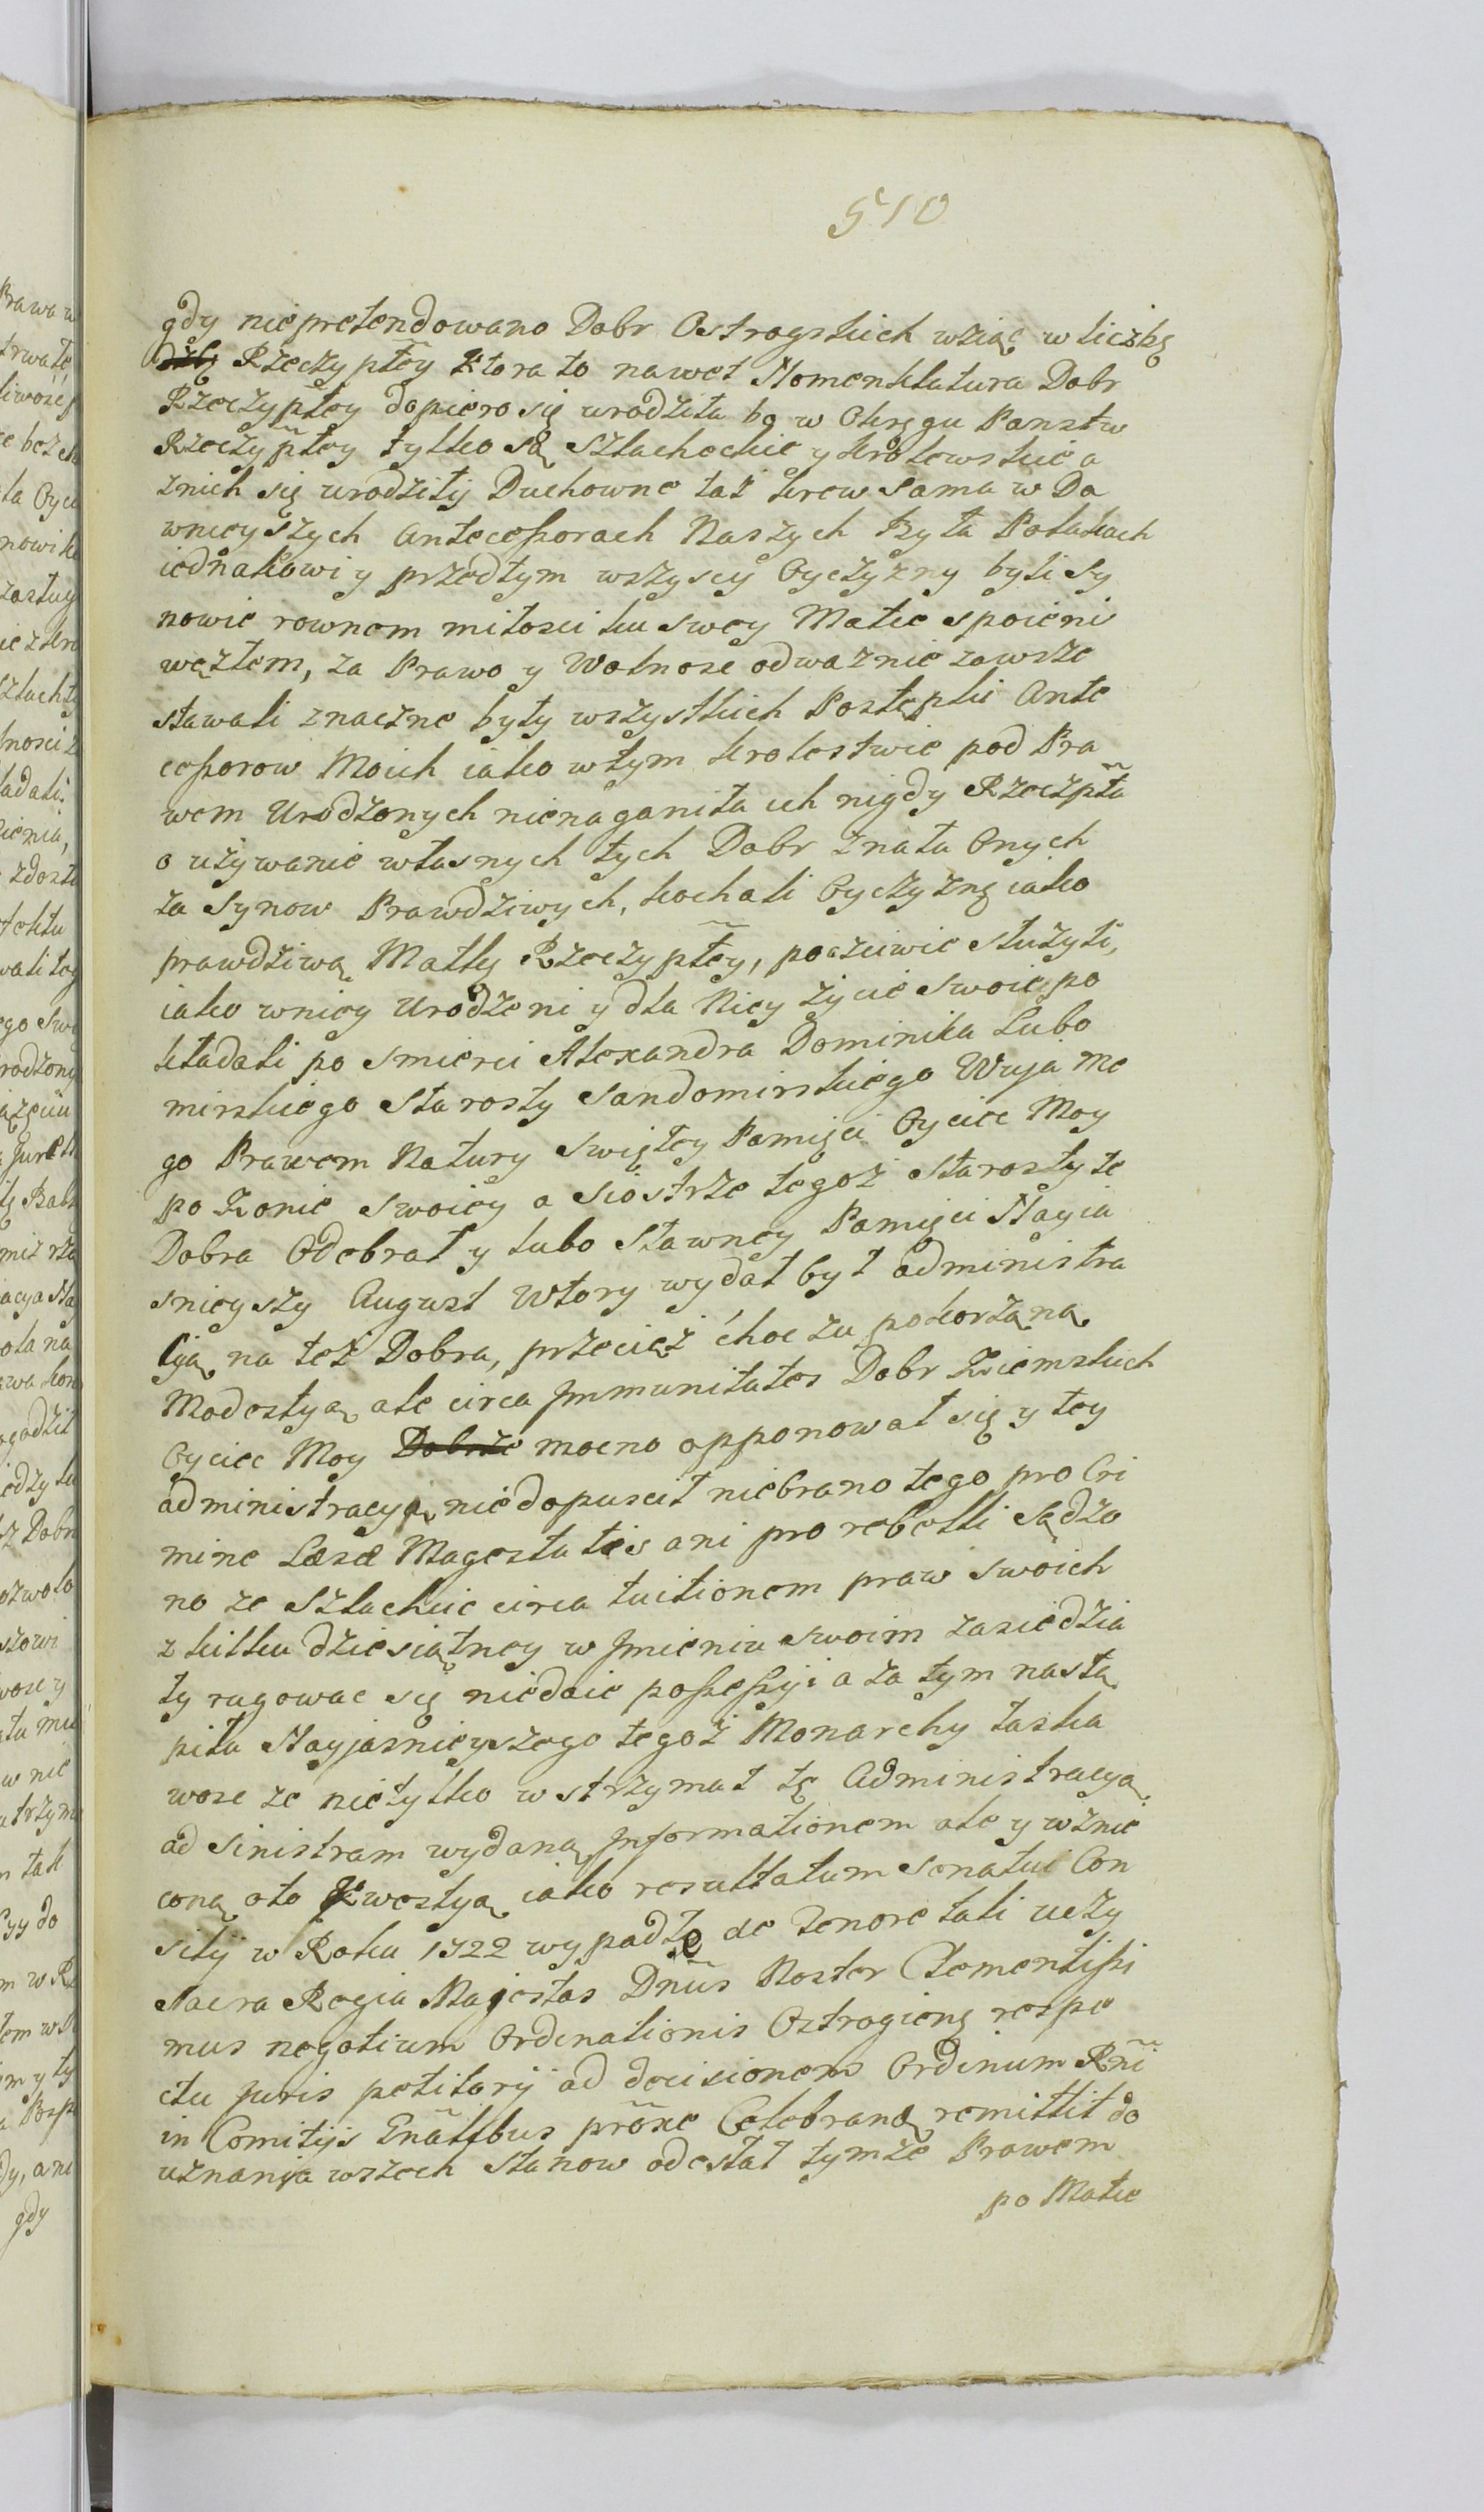 510
gdy niepretendowano Dobr Ostrogskich wziąć w liczbę
Rzeczyptey ktora to nawet Nomenklatura Dobr
Rzeczyptey dopiero się urodziła bo w Okręgu Panstw
Rzeczyptey tylko są Szlacheckie y Krolewskie a
znich się urodziły Duchowne taż krew sama w Da
wnieyszych Antecessorach Naszych była Polakach
iednakowi y przedtym wszyscy Oyczyzny byli Sy
nowie rownem miłosci ku swey Matce spoieni
węzłem, za Prawo y Wolnosc odwaznie zawsze
stawali znaczne były wszystkich Postępki Ante
cessorow Moich iako wtym krolestwie pod Pra
wem Urodzonych nienaganiła ich nigdy Rzeczpta
o używanie własnych tych Dobr znała Onych
za Synow Prawdziwych, kochali Oyczyznę iako
prawdziwą Matkę Rzeczyptey, poczciwie służyli,
iako wniey Urodzeni y dla Niey życie swoie po
kładali po smierci Alexandra Dominika Lubo
mirskiego Starosty Sandomirskiego Wuja me
go Prawem Natury Swiętey Pamięci Oyciec Moy
po Zonie swoiey a Siostrze tegoż Starosty te
Dobra Odebrał y lubo Sławney Pamięci Nayia
snieyszy August Wtory wydał był administra
cyą na też Dobra, przecież choc zu pokorzaną
Modestyą ale circa Immunitates Dobr Ziemskich
Oyciec Moy Dobrze mocno opponował się y tey
administracyą niedopuscił niebrano tego pro Cri
mine Læsæ Magestatis ani pro rebelli Sądzo
no ze Szlachcic circa tuitionem praw swoich
z kilku dziesiątney w Imieniu swoim zasiedzia
ły rugowac się niedaie possessyi a za tym nastą
piła Nayjasnieyszego tegoż Monarchy łaska
wosc ze nietylko wstrzymał tę Administracyą
ad Sinistram wydaną Informationem ale y wznie
coną oto Kwestyą iako resultatum Senatus Con
silij w Roku 1722 wypadłe de Tenore tali uczy
Sacra Regia Majestas Dnus Noster Clementissi
mus negotium Ordinationis Ostrogien respe
ctu Juris petitorij ad decisionem Ordinum Rni
in Comitijs Gnalibus proxe Celebran remittit do
uznania wszech Stanow odesłał tymże Prawem
po Matce